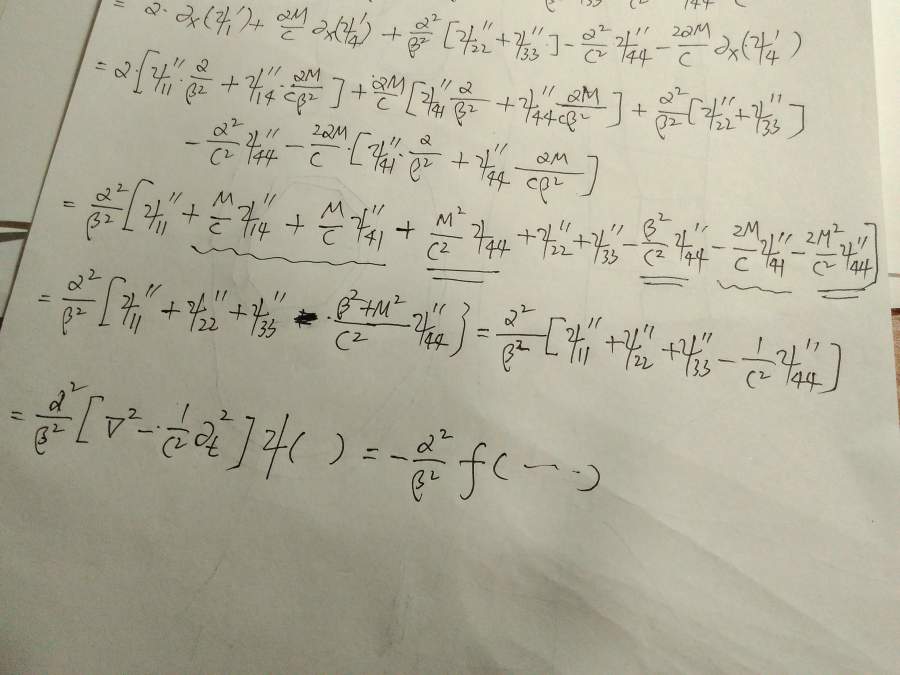 = α · ∂x(ψ'₁) + αM/C ∂x(ψ'₄) + α²/β² [ψ''₂₂ + ψ''₃₃] − α²/C² ψ''₄₄ − 2αM/C ∂x(ψ'₄)
= α · [ψ''₁₁ · α/β² + ψ''₁₄ · αM/Cβ²] + αM/C [ψ''₄₁ α/β² + ψ''₄₄ αM/Cβ²] + α²/β² [ψ''₂₂ + ψ''₃₃]
− α²/C² ψ''₄₄ − 2αM/C · [ψ''₄₁ · α/β² + ψ''₄₄ αM/Cβ²]
= α²/β² [ψ''₁₁ + M/C ψ''₁₄ + M/C ψ''₄₁ + M²/C² ψ''₄₄ + ψ''₂₂ + ψ''₃₃ − β²/C² ψ''₄₄ − 2M/C ψ''₄₁ − 2M²/C² ψ''₄₄]
= α²/β² [ψ''₁₁ + ψ''₂₂ + ψ''₃₃ · β²+M²/C² ψ''₄₄} = α²/β² [ψ''₁₁ + ψ''₂₂ + ψ''₃₃ − 1/C² ψ''₄₄]
= α²/β² [∇² − · 1/C² ∂t²] ψ( ) = − α²/β² f( ⋯ )